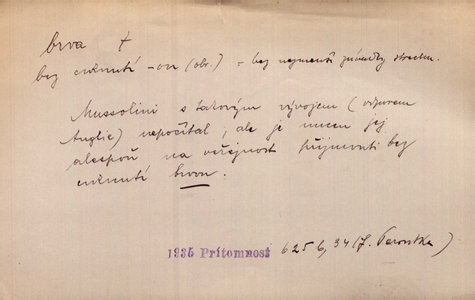 brva f
bez cuknutí -ou (obr.) = bez nejmenší známky strachu.
Mussolini s takovým vývojem (odporem
Anglie) nepočítal, ale je nucen jej
alespoň na veřejnost přijmouti bez
cuknutí brvou.
1935 Přítomnost 625 6, 34 (F. Peroutka)